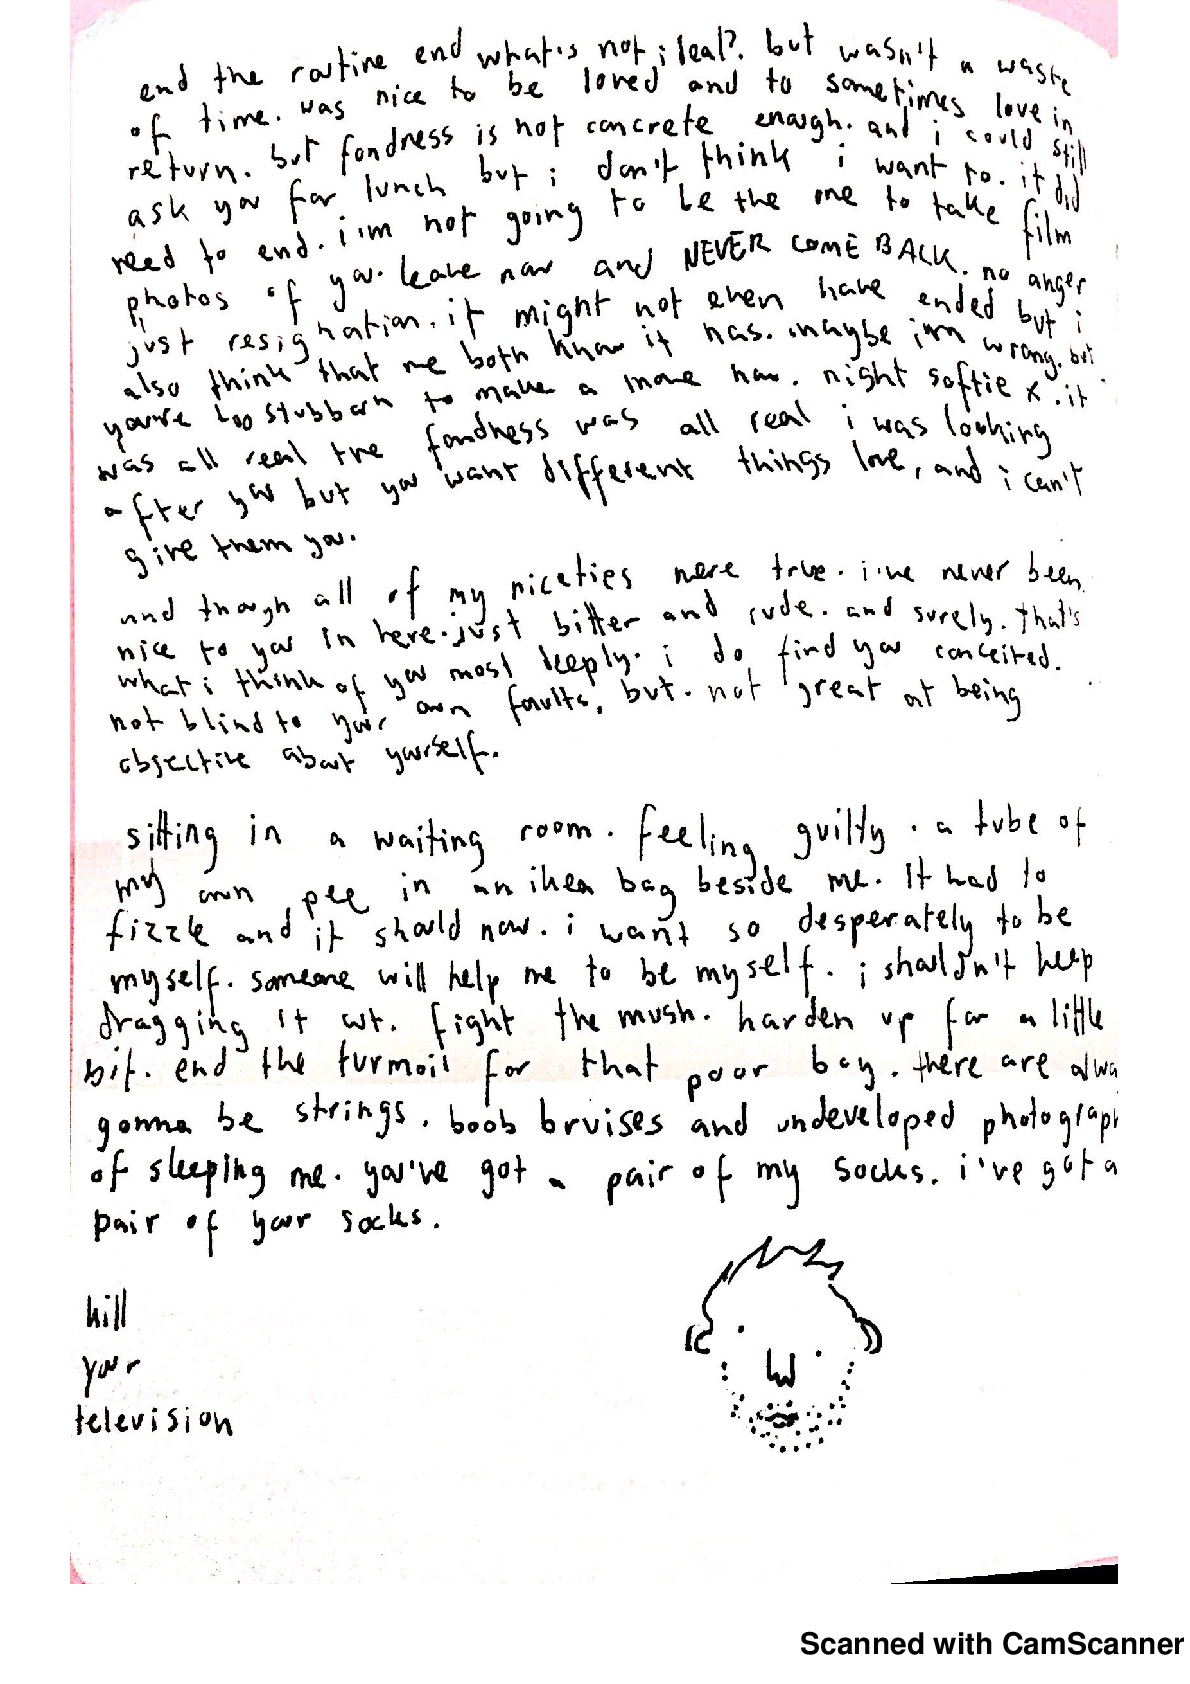 end the routine end what's not i leal?. but wasn't a waste
of time. was nice to be loved and to sometimes love in
return. but fondness is not concrete enough. and i could still
ask you for lunch but i don't think i want to. it did
need to end. i'm not going to be the one to take film
photos of you. leave now and NEVER COME BACK. no anger
just resignation. it might not even have ended but i
also think that we both know it has. maybe i'm wrong. but
you're too stubborn to make a move now. night softie x. it
was all real the fondness was all real i was looking
after you but you want different things love, and i can't
give them you.
and though all of my niceties were true. i've never been
nice to you in here. just bitter and rude. and surely. that's
what i think of you most deeply. i do find you conceited.
not blind to your own faults, but. not great at being
objective about yourself.
sitting in a waiting room. feeling guilty. a tube of
my own pee in an ikea bag beside me. It had to
fizzle and it should now. i want so desperately to be
myself. someone will help me to be myself. i shouldn't keep
dragging it out. fight the mush. harden up for a little
bit. end the turmoil for that poor boy. there are alwa
gonna be strings. boob bruises and undeveloped photograph
of sleeping me. you've got a pair of my socks. i've got a
pair of your socks.
kill
your
television
Scanned with CamScanner